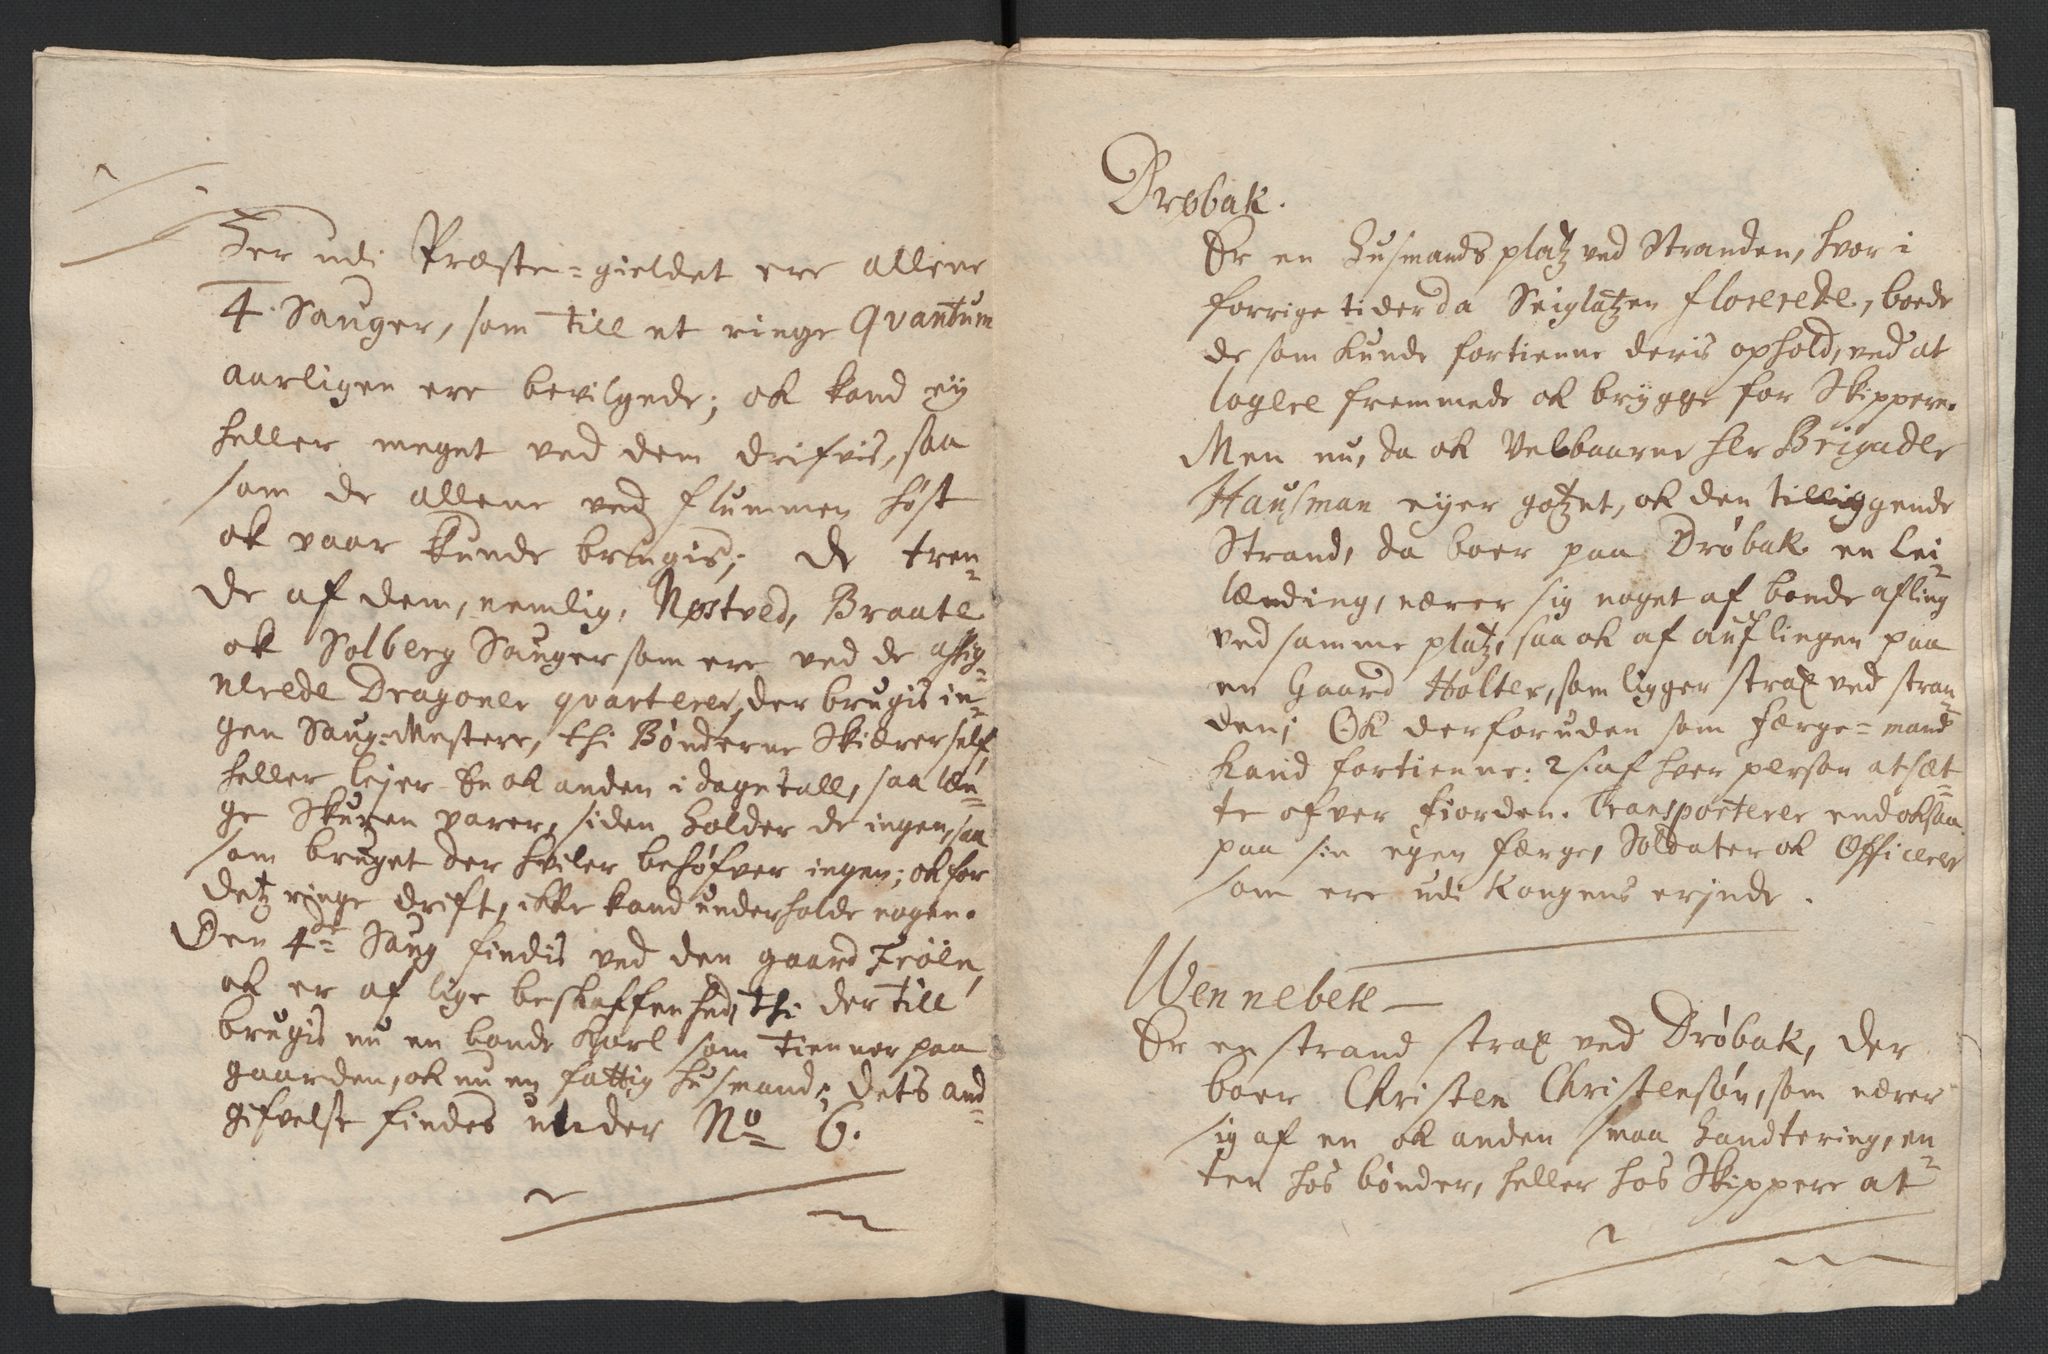 Her udi Præste=gieldet ere allene
4. Sauger, som till et ringe Quantum
aarligen ere bevilgede; ok kand ey
heller meget ved dem drifvis, saa
som de allene ved flummen høst
ok vaar kunde brugis; de tren-
de af dem, nemlig, Nøstved, Braate
ok Solberg Sauger som ere ved de assig-
nerede Dragoner quarterer, der brugis in-
gen Saug-Mestere, thi Bønderne Skiærer self,
heller lejer En ok anden i dagetall, saa læn-
ge Skuren varer, siden holder de ingen, saa
som bruget der hviler behøfver ingen; ok for
detz ringe drift, ikke kand underholde nogen.
Den 4de Saug findis ved den gaard Froën,
ok er af lige beskaffenhed, thi der till
brugis nu en bonde Karl som tienner paa
gaarden, ok nu en fattig husmand; dets and-
gifvelse findes under No 6.
Drøbak.
Er en Husmands platz ved Stranden, hvor i
forrige tider da Seiglatzen florerede, boede
de som kunde fortienne deris ophold, ved at
logere fremmede ok brygge for Skippere.
Men nu, da ok Velbaarne Her Brigader
Hausman eyer gotzet, ok den tilliggende
Strand, da boer paa Drøbak en lei-
lænding, nærer sig noget af bonde afling
ved samme platz, saa ok af auflingen paa
en Gaard Holter, som ligger strax ved stran-
den; Ok der foruden som Færge=mand
kand fortienne: 2 s: af hver person at sæt-
te ofver fiorden. Transporterer end oksaa
paa sin egen færge, Soldater ok Officerer
som ere udi Kongens erinde.
Wennebek
Er en strand strax ved Drøbak, der
boer Christen Christensøn, som nærer
sig af en ok anden smaa Handtering, en-
ten hos bønder, heller hos Skippere at